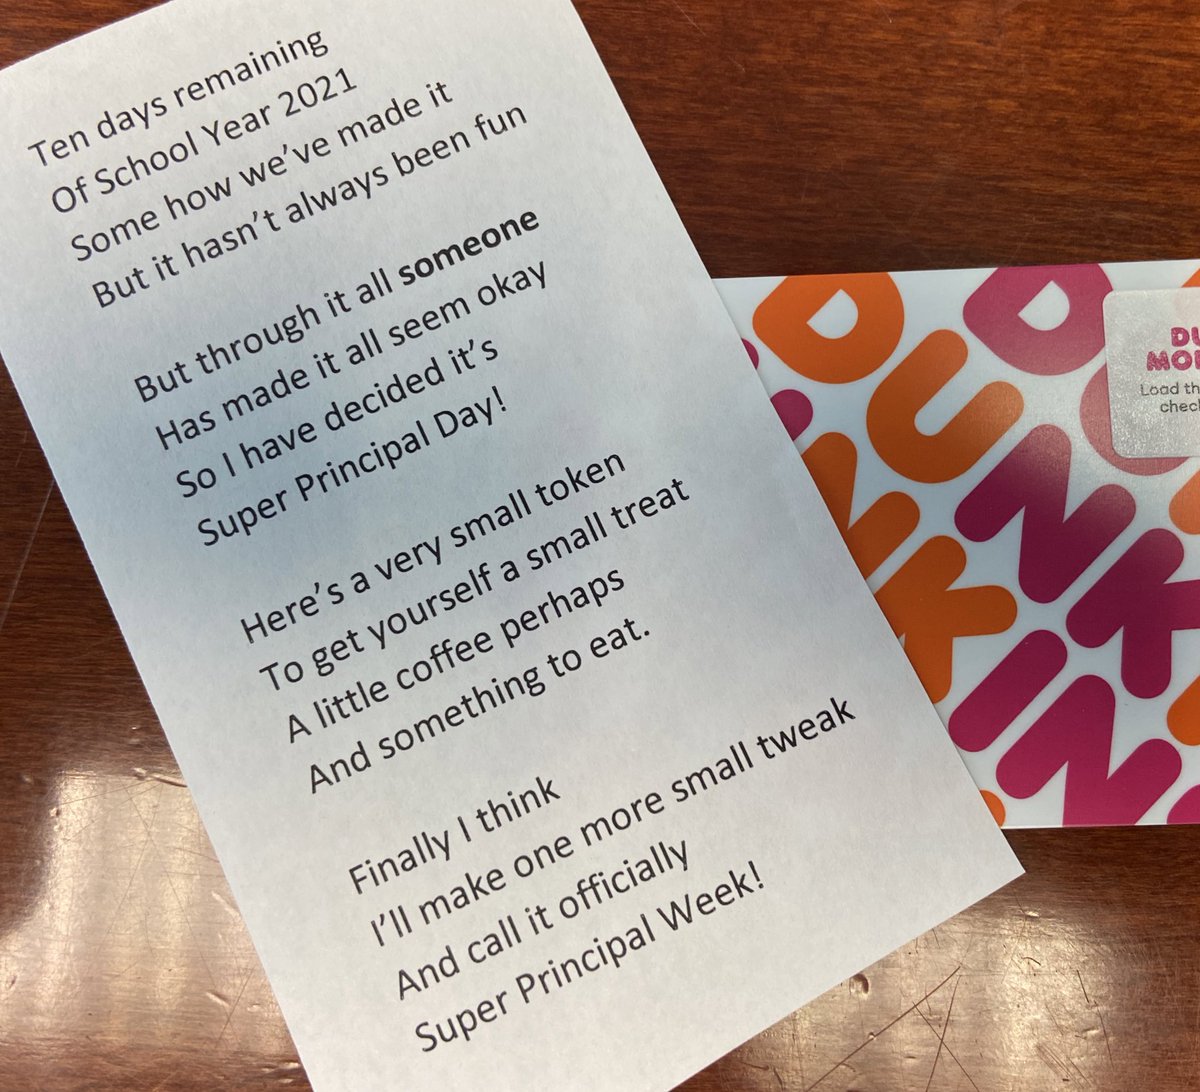 Ten days remaining
Of School Year 2021
Some how we've made it
But it hasn't always been fun
But through it all someone
Has made it all seem okay
So I have decided it's
Super Principal Day!
Here's a very small token
To get yourself a small treat
A little coffee perhaps
And something to eat.
Finally I think
I'll make one more small tweak
And call it officially
Super Principal Week!
DUNK
DUNKIN
Load